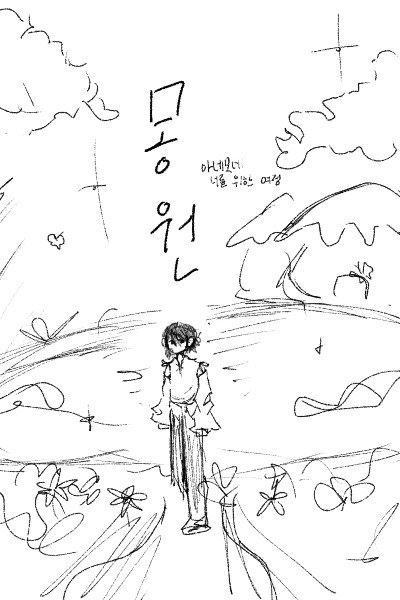 몽
원
아네모네
너를 위한 여정